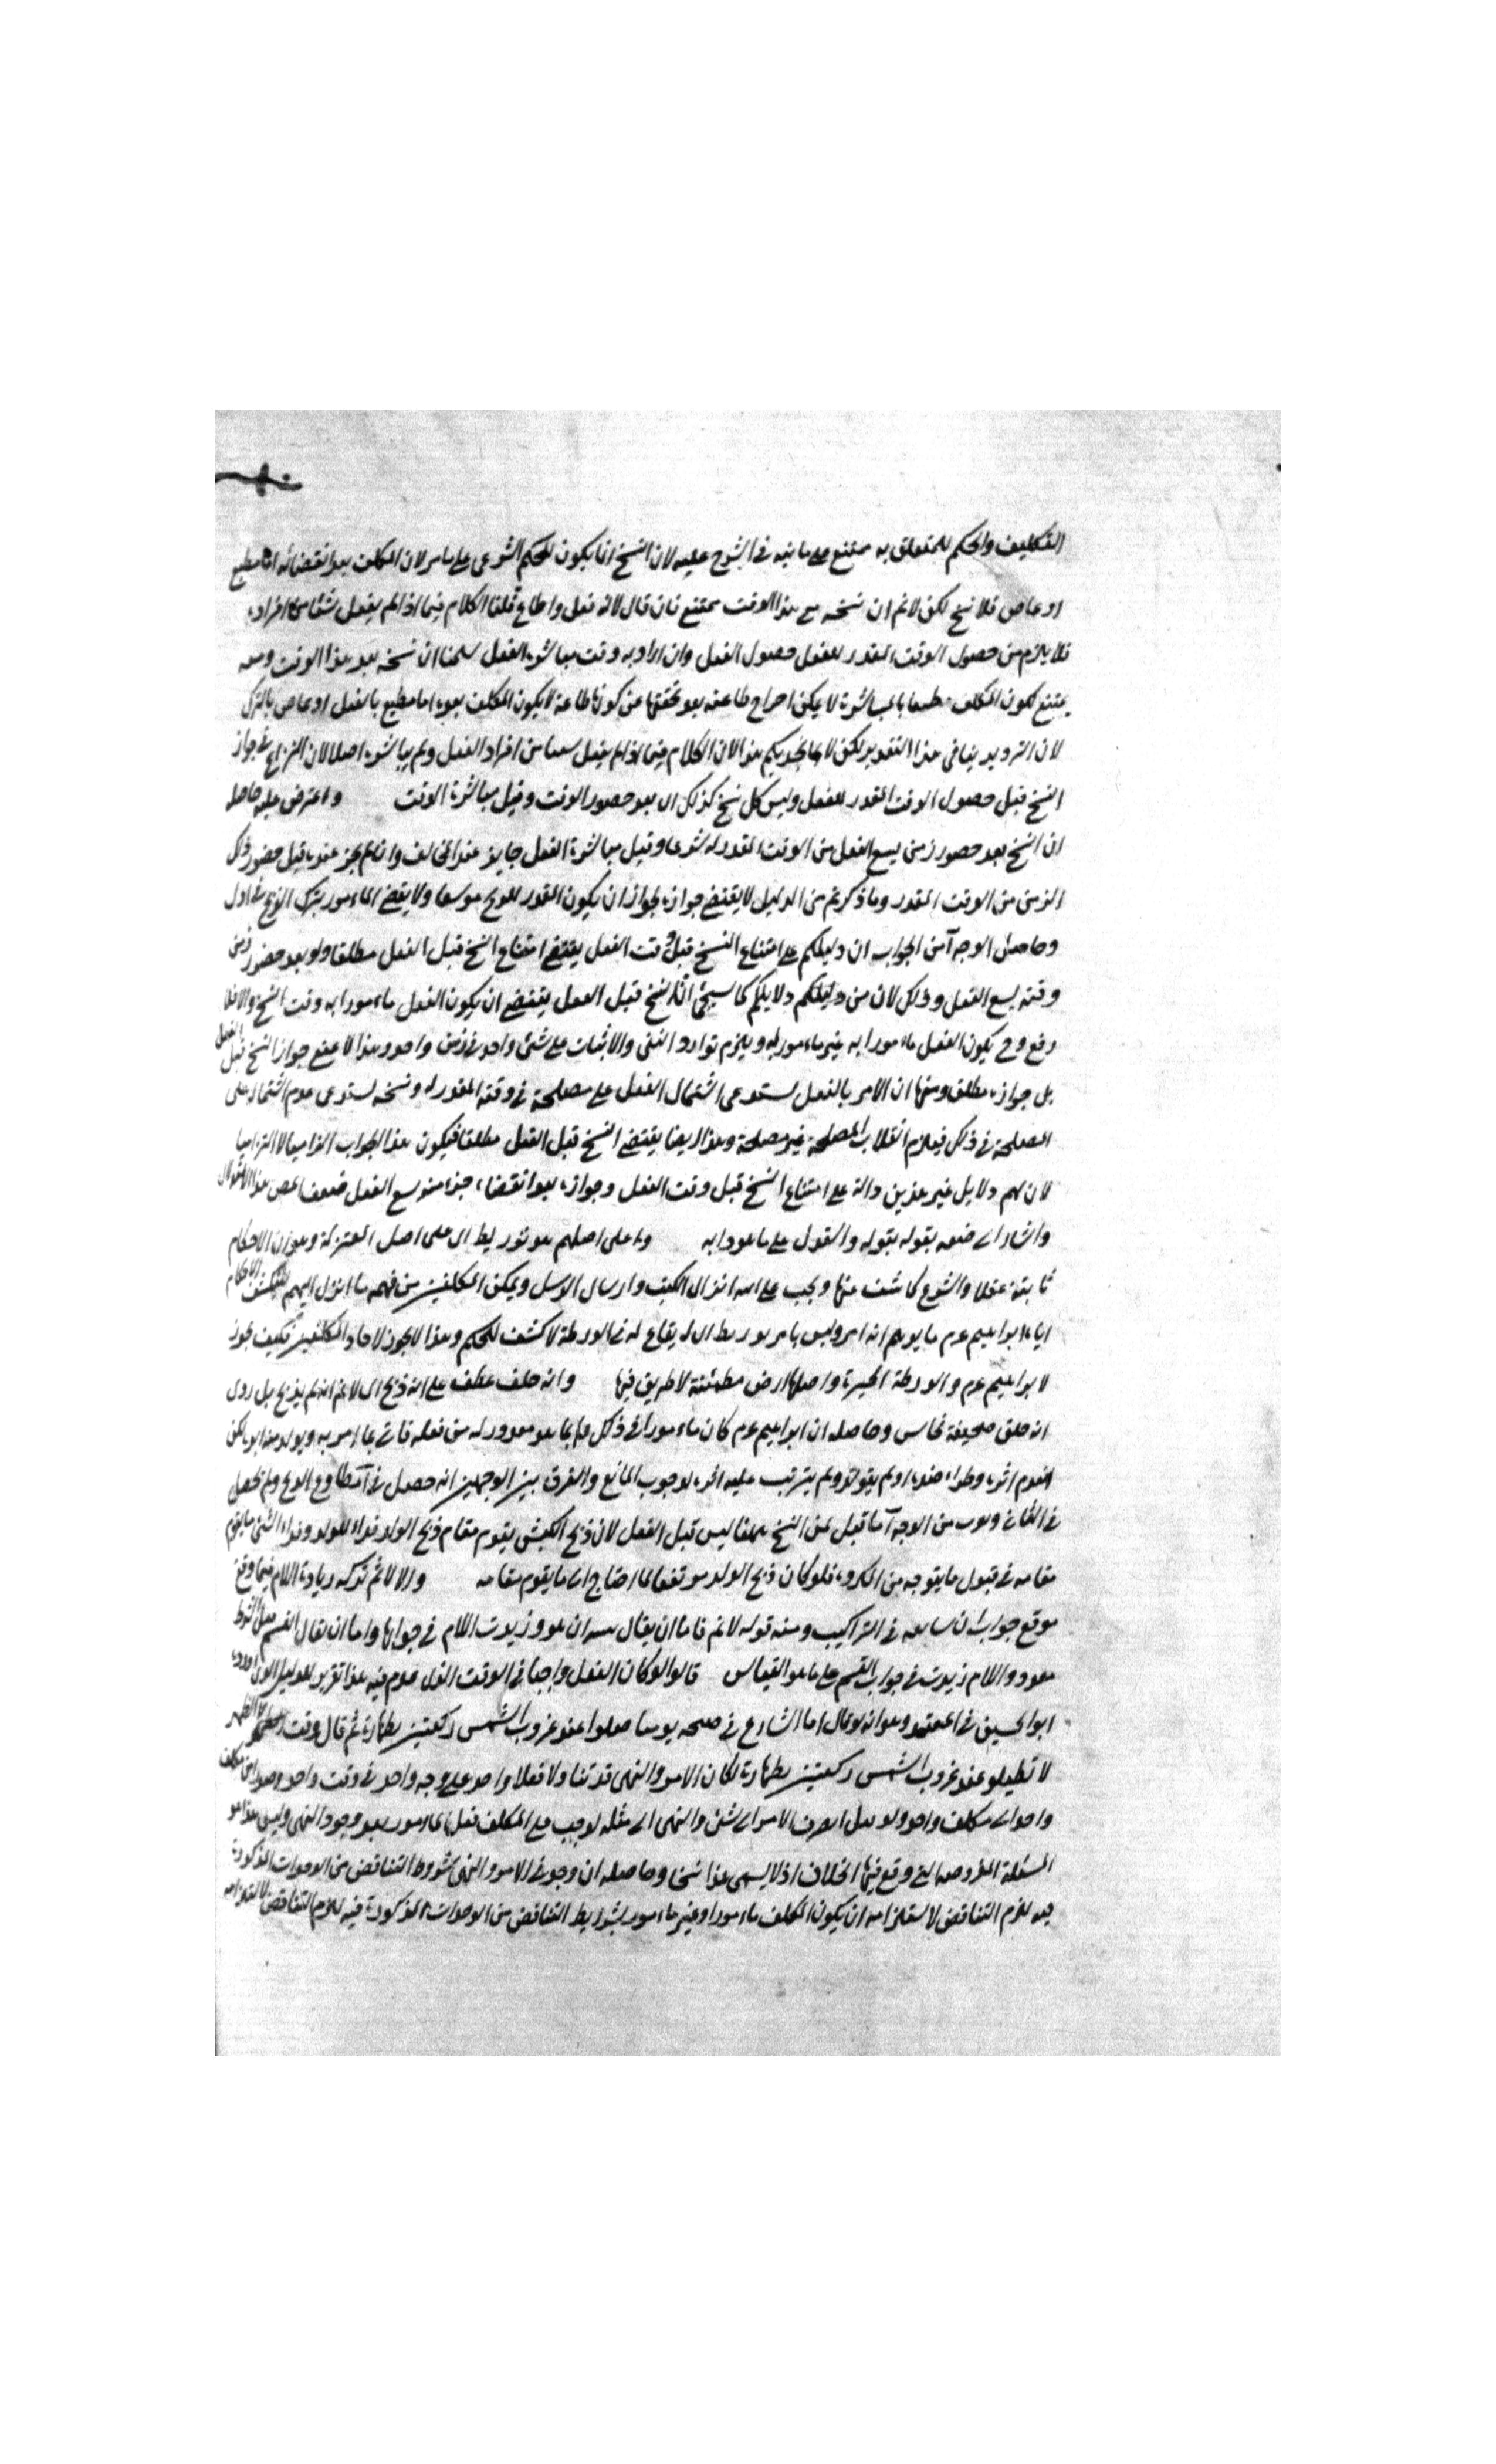 التكليف والحكم المتعلق به ممتنع على ما نبه في الشرح عليه لان النسخ انما يكون للحكم الشرعي على ما مر لان المكلف بعد انقضائه اما مطيع
او عاص فلا نسخ لكن لا نم ان نسخه مع هذا الوقت ممتنع فان قال لانه فعل واطاع قلنا الكلام فيما اذا لم يفعل شئا من افراده
فلا يلزم من حصول الوقت المقدر للفعل حصول الفعل وان اراد به وقت مباشرة الفعل سلمنا ان نسخه بعد هذا الوقت ومعه
يمتنع لكون المكلف مطيعا بالمباشرة لا يمكن اخراج طاعته بعد تحققها عن كونها طاعة لا يكون المكلف بعده اما مطيع بالفعل او عاص بالترك
لان الترديد ينافى هذا التقدير لكن لا يجديكم هذا لان الكلام فيما اذا لم يفعل من افراد الفعل ولم يباشره اصلا لان النزاع في جواز
النسخ قبل حصول الوقت المقدر للفعل وليس كل نسخ كذلك اى بعد حضور الوقت وقبل مباشرة الوقت واعترض عليه حاصله
ان النسخ بعد حضور زمن يسع الفعل من الوقت المقدر له شرعا وقبل مباشرة الفعل جايز عند المخالف وانما لم يجز عنده قبل حضور ذلك
الزمن من الوقت المقدر وما ذكرتم من الدليل لا يقتضي جوازه لجواز ان يكون المقدر للذبح موسعا ولا يقضي الماءمور بترك الذبح في اول
وحاصل الوجه آ من الجواب ان دليلكم على امتناع النسخ قبل وقت الفعل يقتضي امتناع النسخ قبل الفعل مطلقا ولو بعد حضور زمن
وقته يسع الفعل وذلك لان من دلايلكم كما سيجئ ان النسخ قبل الفعل يقتضي ان يكون الفعل ماءمورا به وقت النسخ والا فلا
رفع وح يكون الفعل ماءمورا به غير ماءمور به ويلزم توارد النفى والاثبات على شئ واحد في زمن واحد وهذا لا جواز النسخ قبل الفعل
بل جوازه مطلقا ومنها ان الامر بالفعل يستدعى اشتمال الفعل على مصلحة في وقته المقدر له ونسخه يستدعى عدم اشتماله على
المصلحة في ذلك فيلزم انقلاب المصلحة غير مصلحة وهذا ايضا يقتضي النسخ قبل الفعل مطلقا فيكون هذا الجواب الزاميا
لان لهم دلايل غير هذين دالة على امتناع النسخ قبل وقت الفعل وجوازه بعد انقضاء جزء منه يسع الفعل فضعف هذا
واشار الى ضعفه بقوله والقول على ما هو دابه وعلى اصلهم هو توريط اى على اصل المعتزلة وهو ان الاحكام
ثابتة عقلا والشرع كاشف عنها ويجب على الله انزال الكتب وارسال الرسل ويمكن المكلفين من فهم ما انزل اليهم
ايهام ابراهيم عم ما يوهم انه امر وليس بامر توريط اى ايقاع له في الورطة لا كشف للحكم وهذا لا يجوز لاحاد المكلفين فكيف يجوز
لابراهيم عم والورطة الحيرة واصلها ارض مطمئنة لا طريق فيها وانه خلف عطف على انه ذبح اى لا نم انه لم يذبح بل روى
انه خلق صحيفة نحاس وحاصله ان ابراهيم عم كان ماءمورا في ذلك بما هو مقدور له من فعله فاتى بما امر به
انعدم اثره وطراء ضده او لم يترتب عليه اثره لوجوب المانع والفرق بين الوجهين انه حصل في آ قطاوع الذبح ولم يحصل
في الثاني من الوجه آ ما قبل من النسخ ههنا ليس قبل الفعل لان ذبح الكبش يقوم مقام ذبح الولد فداء للولد وفداء الشئ ما يقوم
مقامه في قبول ما يتوجه من المكروه فلو كان ذبح الولد مرتفعا لما احتاج الى ما يقوم مقامه والا لا ثم تركه زيادة اللام فيما وقع
موقع جواب ان في التراكيب ومنه قوله لا نم فاما ان يقال ان هو وزيدت اللام في جوابها واما ان يقال القسم
واللام زيدت في جواب القسم على ما هو القياس قالوا لو كان الفعل واجبا في الوقت الذى عدم فيه هذا تقرير للدليل الذى اورده
ابو الحسين في المعتمد وهو انه لو قال الشارع في صحه يومنا صلوا عند غروب الشمس ركعتين بطهارة ثم قال وقت الظهر
لا تصلوا عند غروب الشمس ركعتين بطهارة لكان الامر والنهى قد تناولا فعلا واحدا على وجه واحد في وقت واحد
واحد الى مكلف واحد ولو انصرف الامر الى شئ والنهى الى مثله لوجب على المكلف فعل الماءمور بعد وجود النهى وليس هذا هو
المسئلة المفروضة التي وقع فيها الخلاف اذ لا يسمى هذا نسخا وحاصله ان وجد في الامر والنهى شروط التناقض من الوحدات المذكورة
فيه يلزم التناقض لاستلزامه ان يكون المكلف ماءمورا وغير ماءمور بشرايط التناقض من الوحدات المذكورة